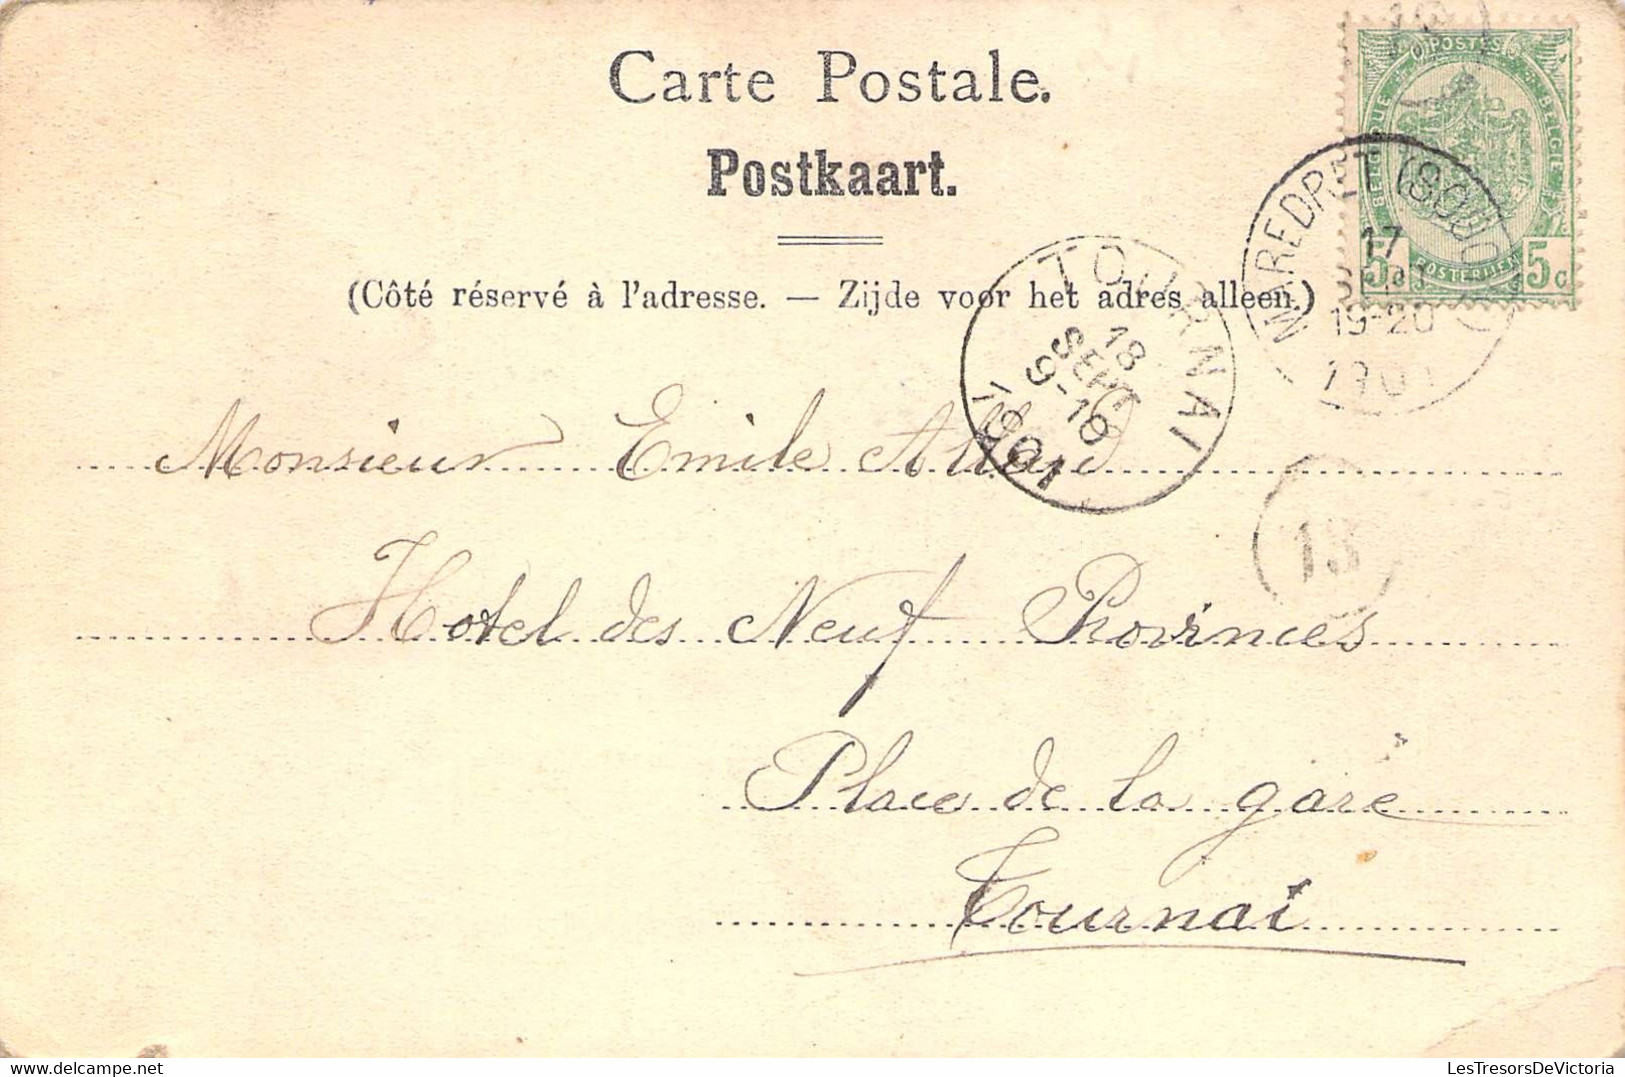 Carte Postale.
Postkaart.
(Côté réservé à l'adresse. — Zijde voor het adres alleen.)
POSTES
BELGIQUE
BELGIË
5c
POSTERIJEN
5c
MAREDRET (SOSOYE)
17
19-20
1901
TOURNAI
18
SEPT
9-10
1901
13
Monsieur Emile Allard
Hotel des Neuf Provinces
Place de la gare
Tournai
LesTresorsDeVictoria